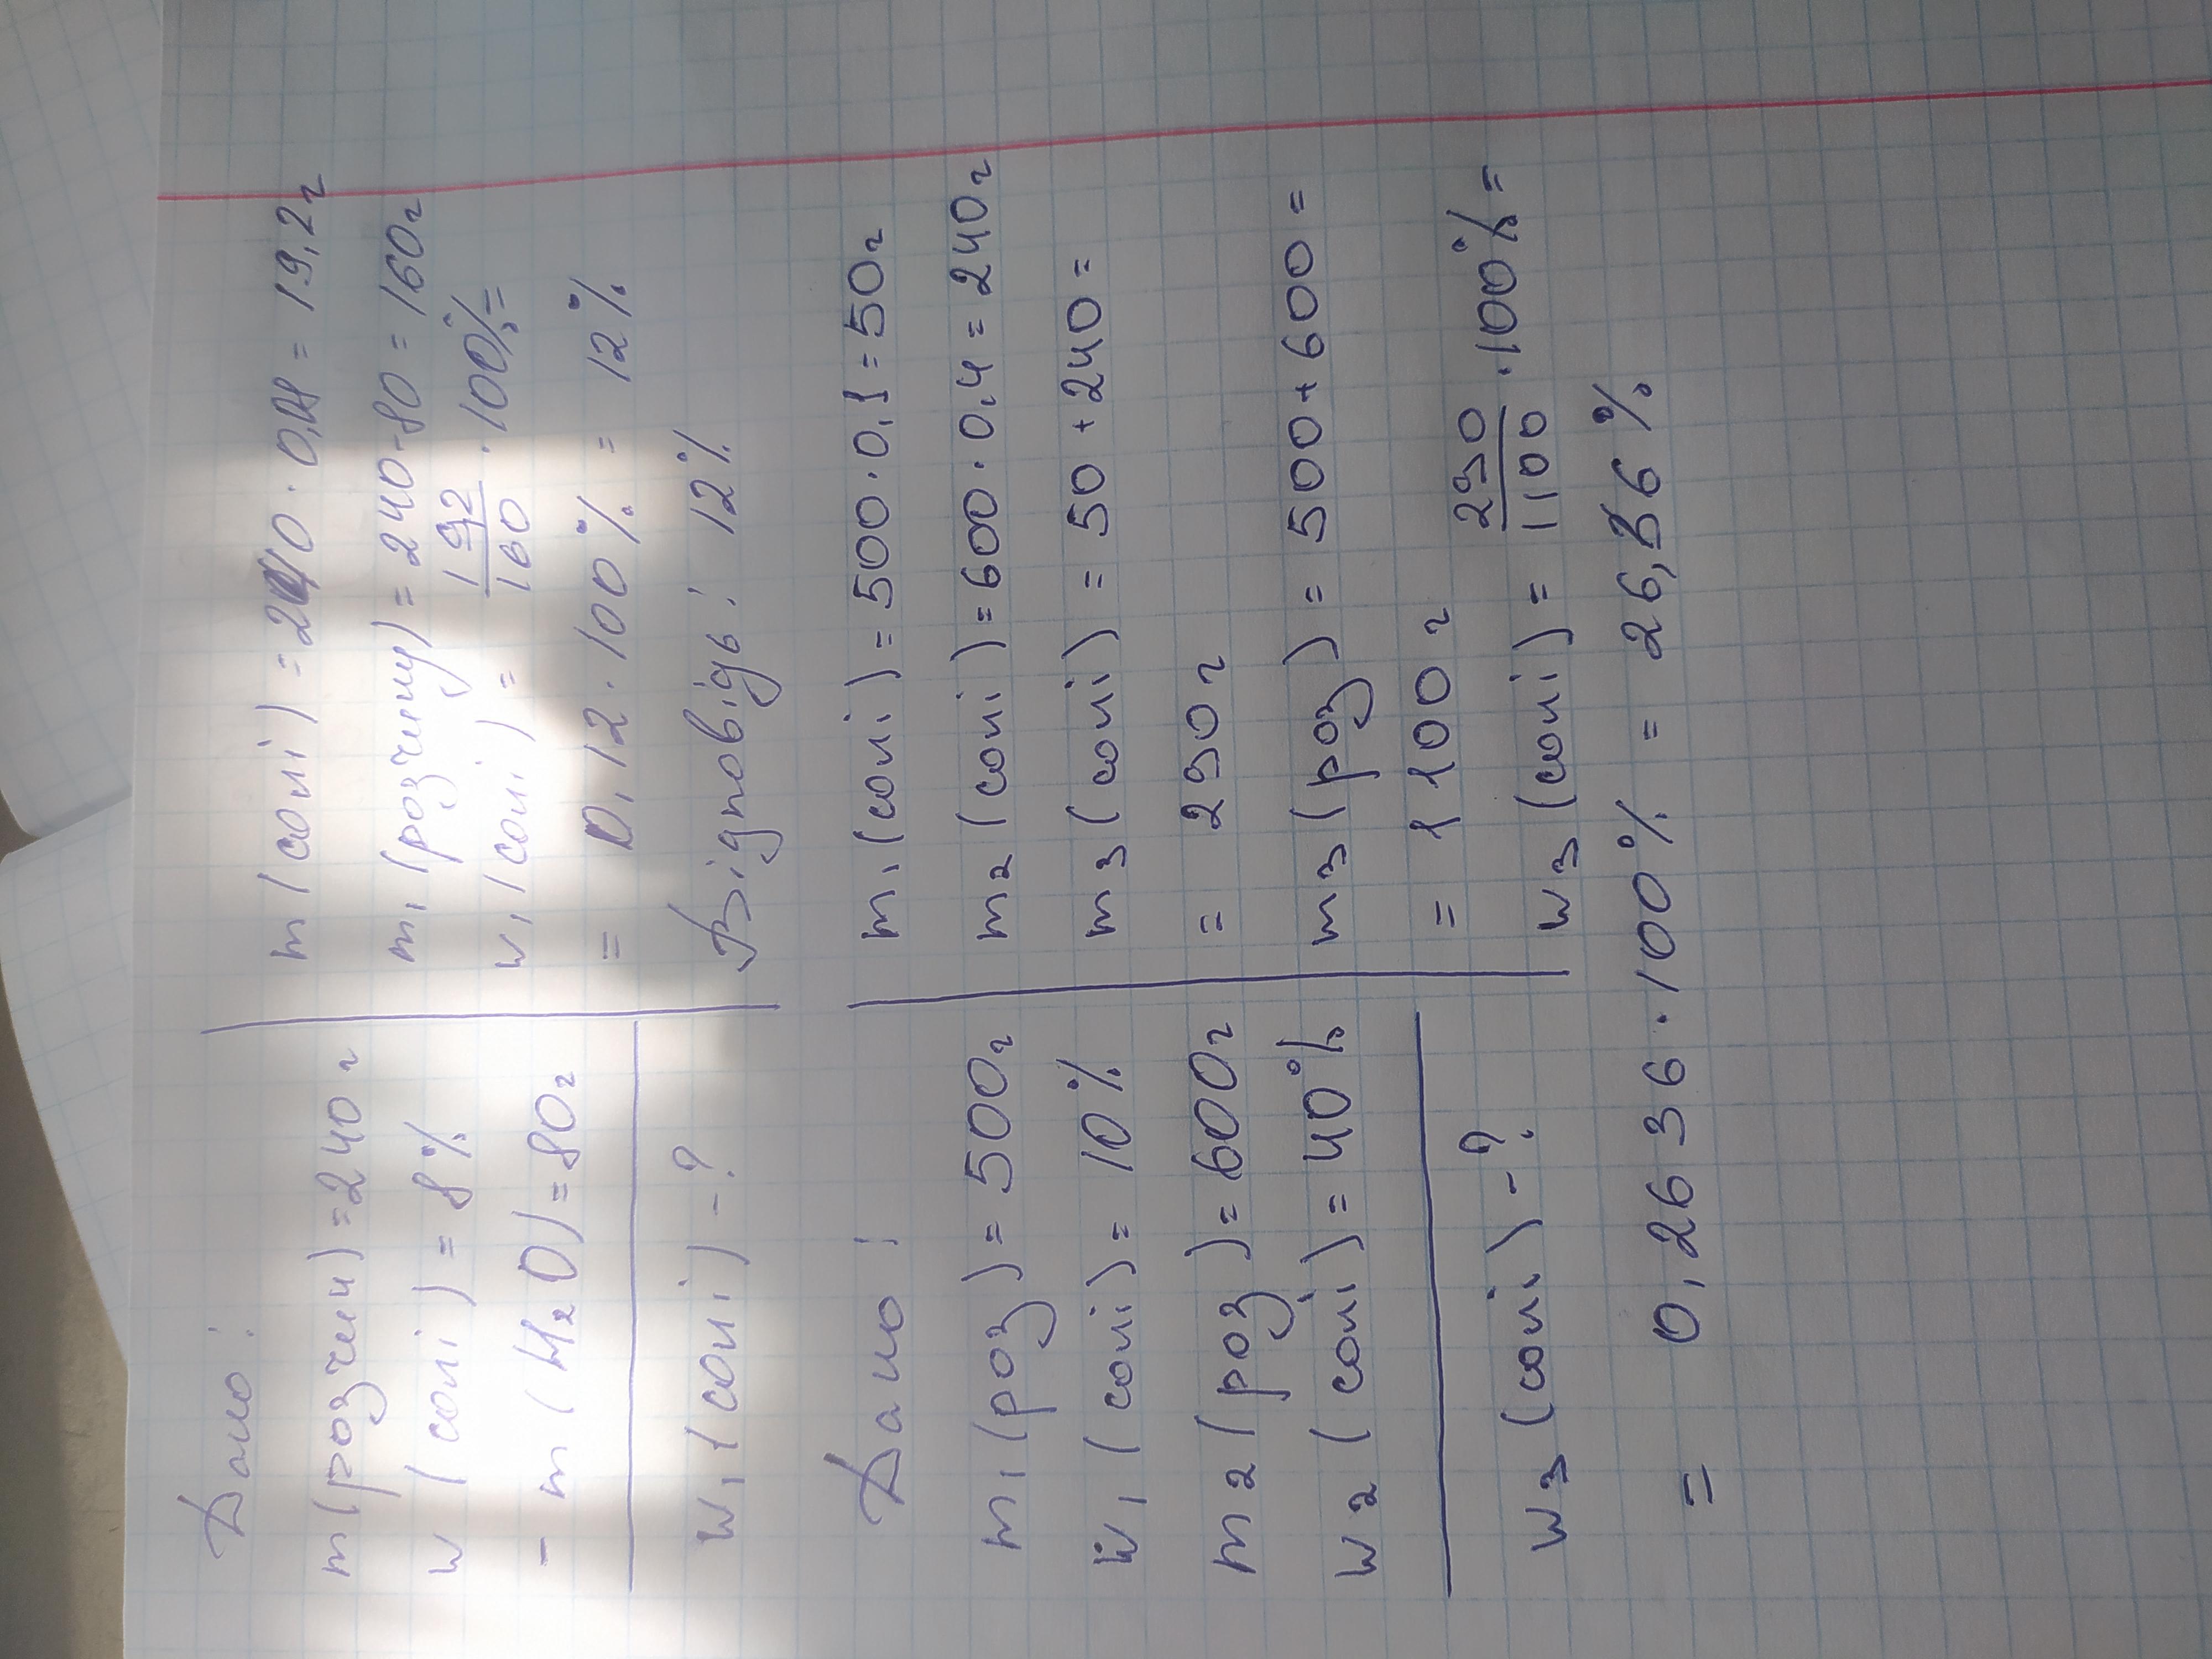 Дано:
m(розчин)=240г
w(солі)=8%
- m(H₂O)=80г
w₁(солі)-?
m(солі)=240·0,08=19,2г
m₁(розчину)=240-80=160г
w₁(солі)=19,2/160·100%=
=0,12·100%=12%
Відповідь: 12%
Дано:
m₁(роз)=500г
w₁(солі)=10%
m₂(роз)=600г
w₂(солі)=40%
w₃(солі)-?
m₁(солі)=500·0,1=50г
m₂(солі)=600·0,4=240г
m₃(солі)=50+240=
=290г
m₃(роз)=500+600=
=1100г
w₃(солі)=290/1100·100%=
=0,2636·100%=26,36%